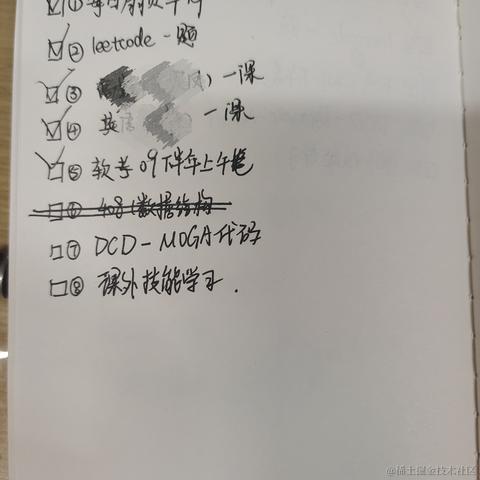 ☑① 每日
☑② leetcode 一题
☑③ 一课
☑④ 英语 一课
☑⑤ 软考 09 下半年上午
☐⑥ 408(数据结构
☐⑦ DCD-MOGA代码
☐⑧ 课外技能学习.
@稀土掘金技术社区